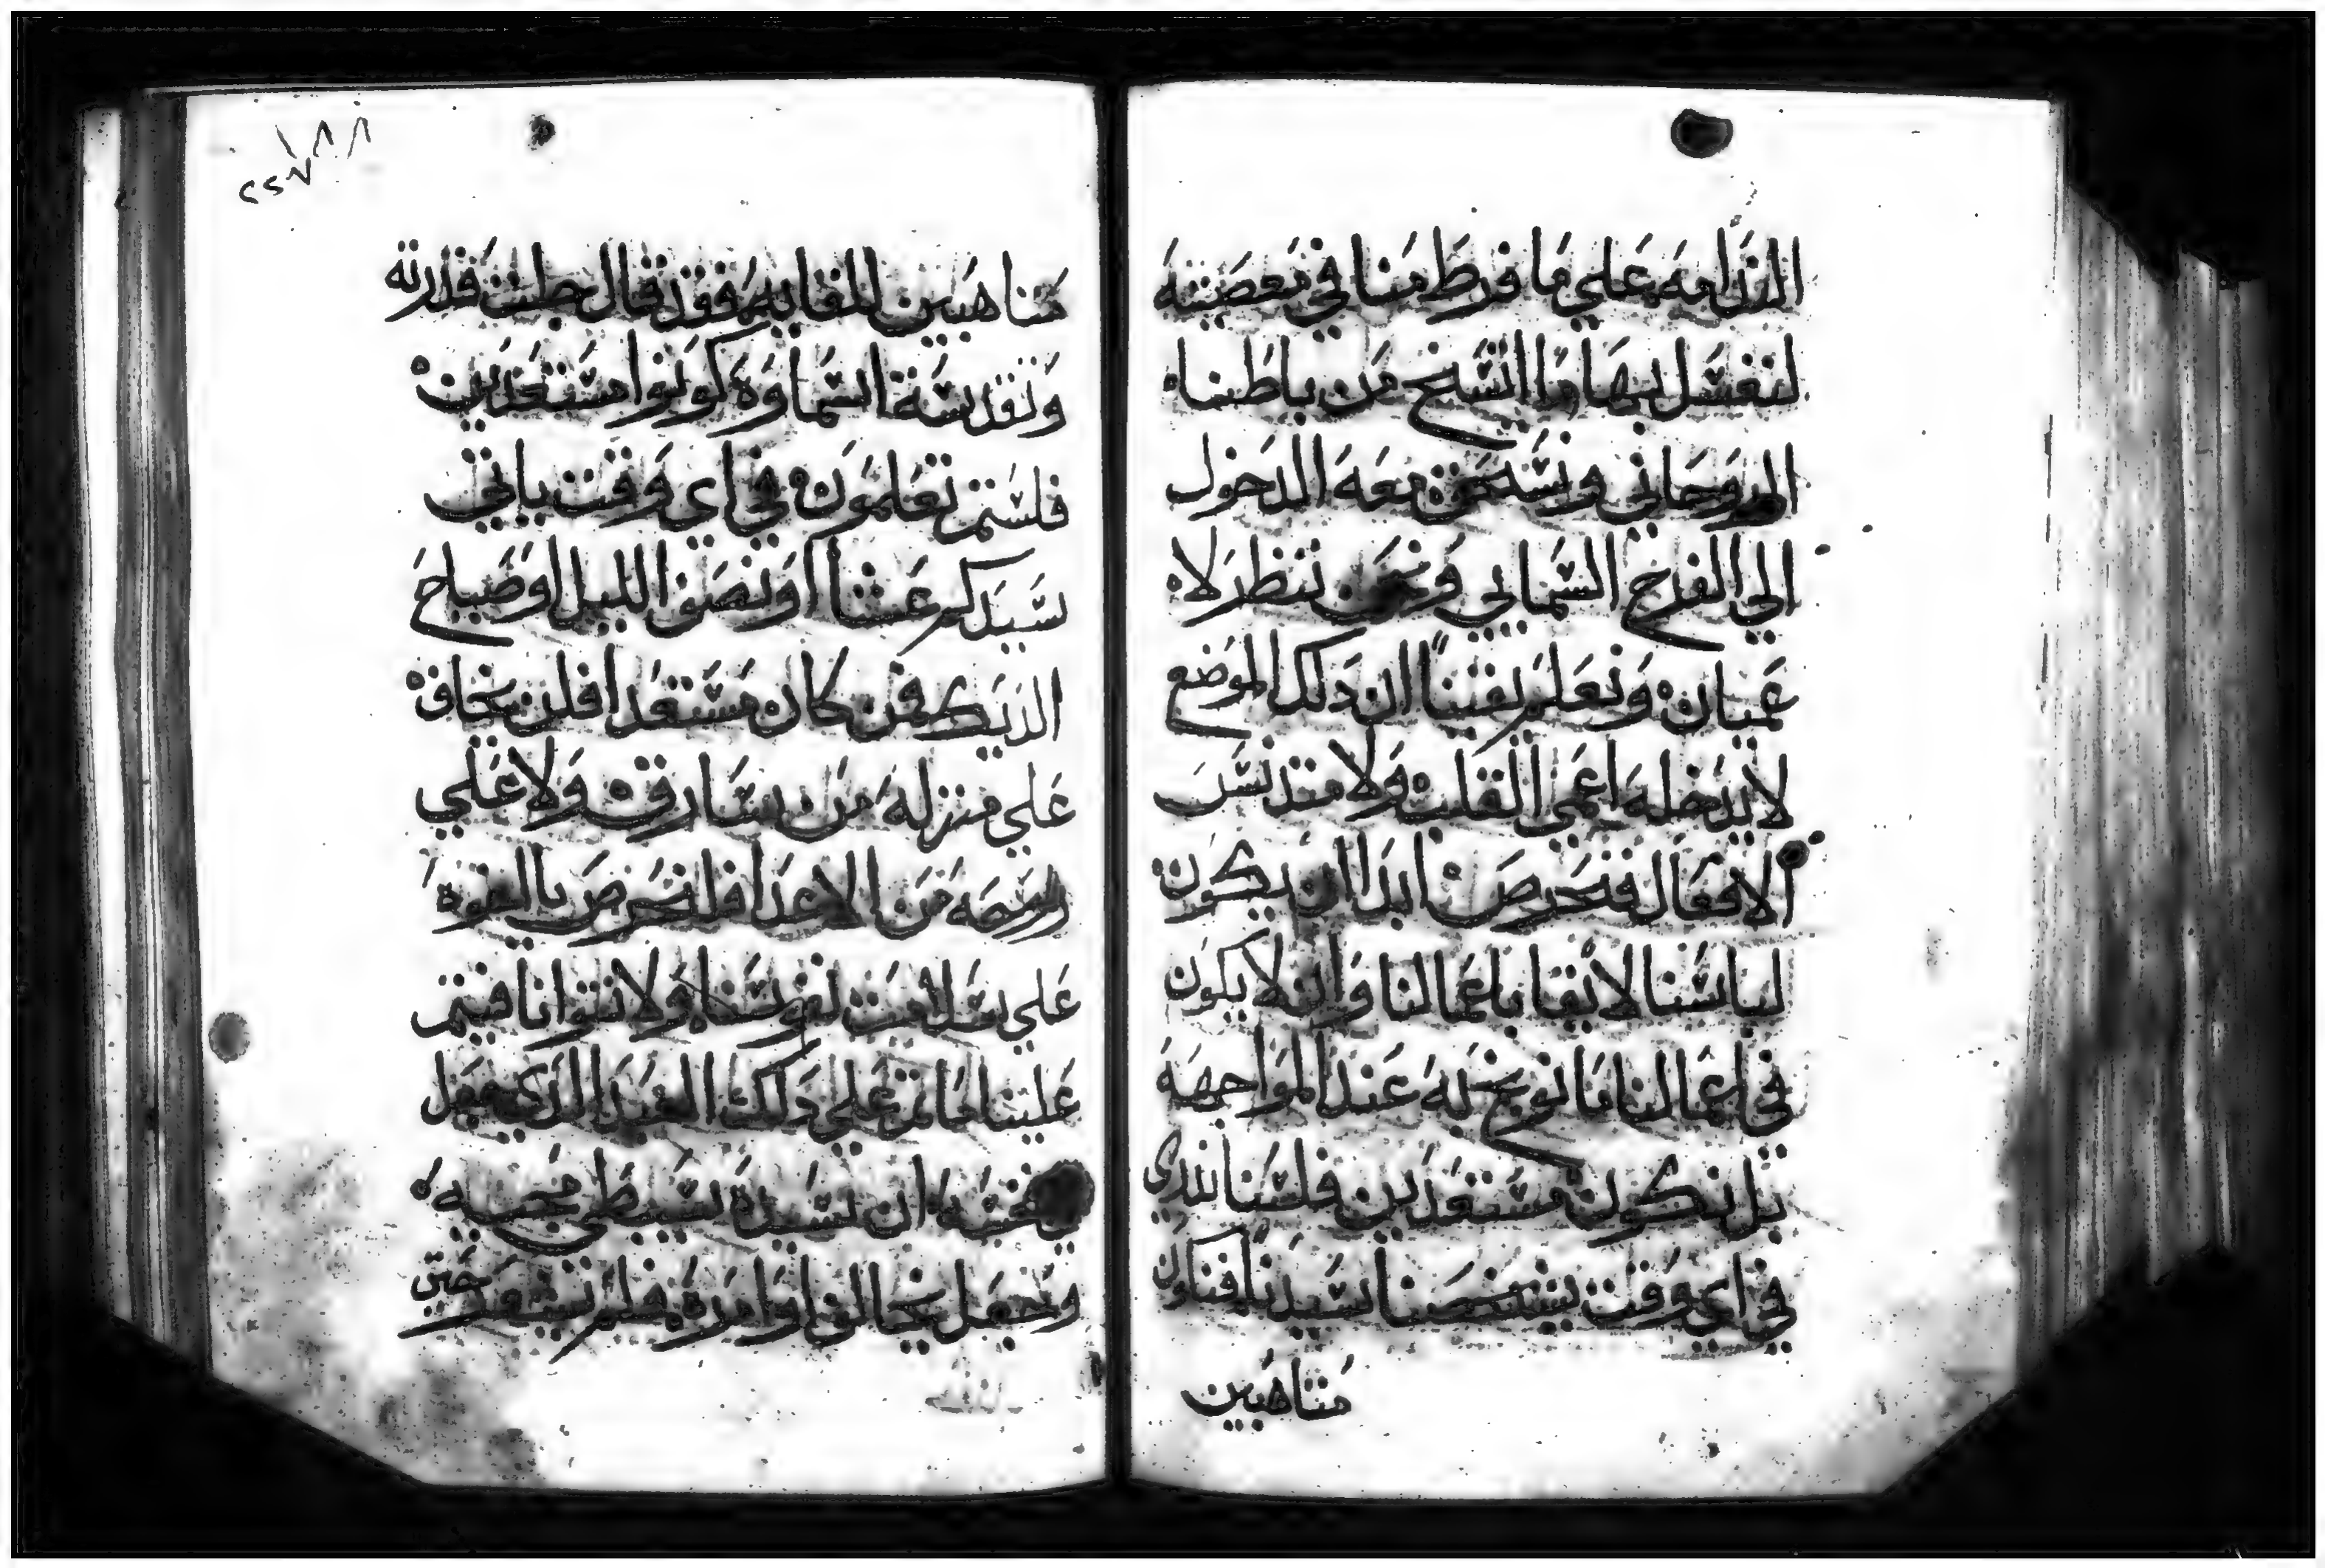 الندامه علي ما فرط منا في معصيته
لنغسل بها وسخ من باطننا
الروحاني ونستحق معه الدخول
الي الفرح السمايي ونحن ننظر لا
عميان ونعلم يقيناً ان دلك الموضع
لا يدخله اعمي القلب ولا متدنس
الافعال فنحرص ابدا ان يكون
لباسنا لايقا باعمالنا وان لا يكون
في اعمالنا ما نوبخ له عند المواجهه
بل نكون مستعدين فلسنا ندري
في اي وقت يشخصنا سيدنا فنكون
متاهبين
١٨٨
متاهبين للقايه فقد قال جلت قدرته
وتقدست اسماوه كونوا مستعدين
فلستم تعلمون في اي وقت ياتي
سيدكم عشا او نصف الليل او صباح
الديك فمن كان مستعدا فلن يخاف
علي منزله من سارق ولا علي
من الاعدا فلنحرص بالقوه
علي نفوسنا ولا نتوانا فيتم
علينا ما تم علي دلك العبد الدي جعل
ان سيده يبطي مجيه
وجعل يخالف اوامره فلم يشعر حتي